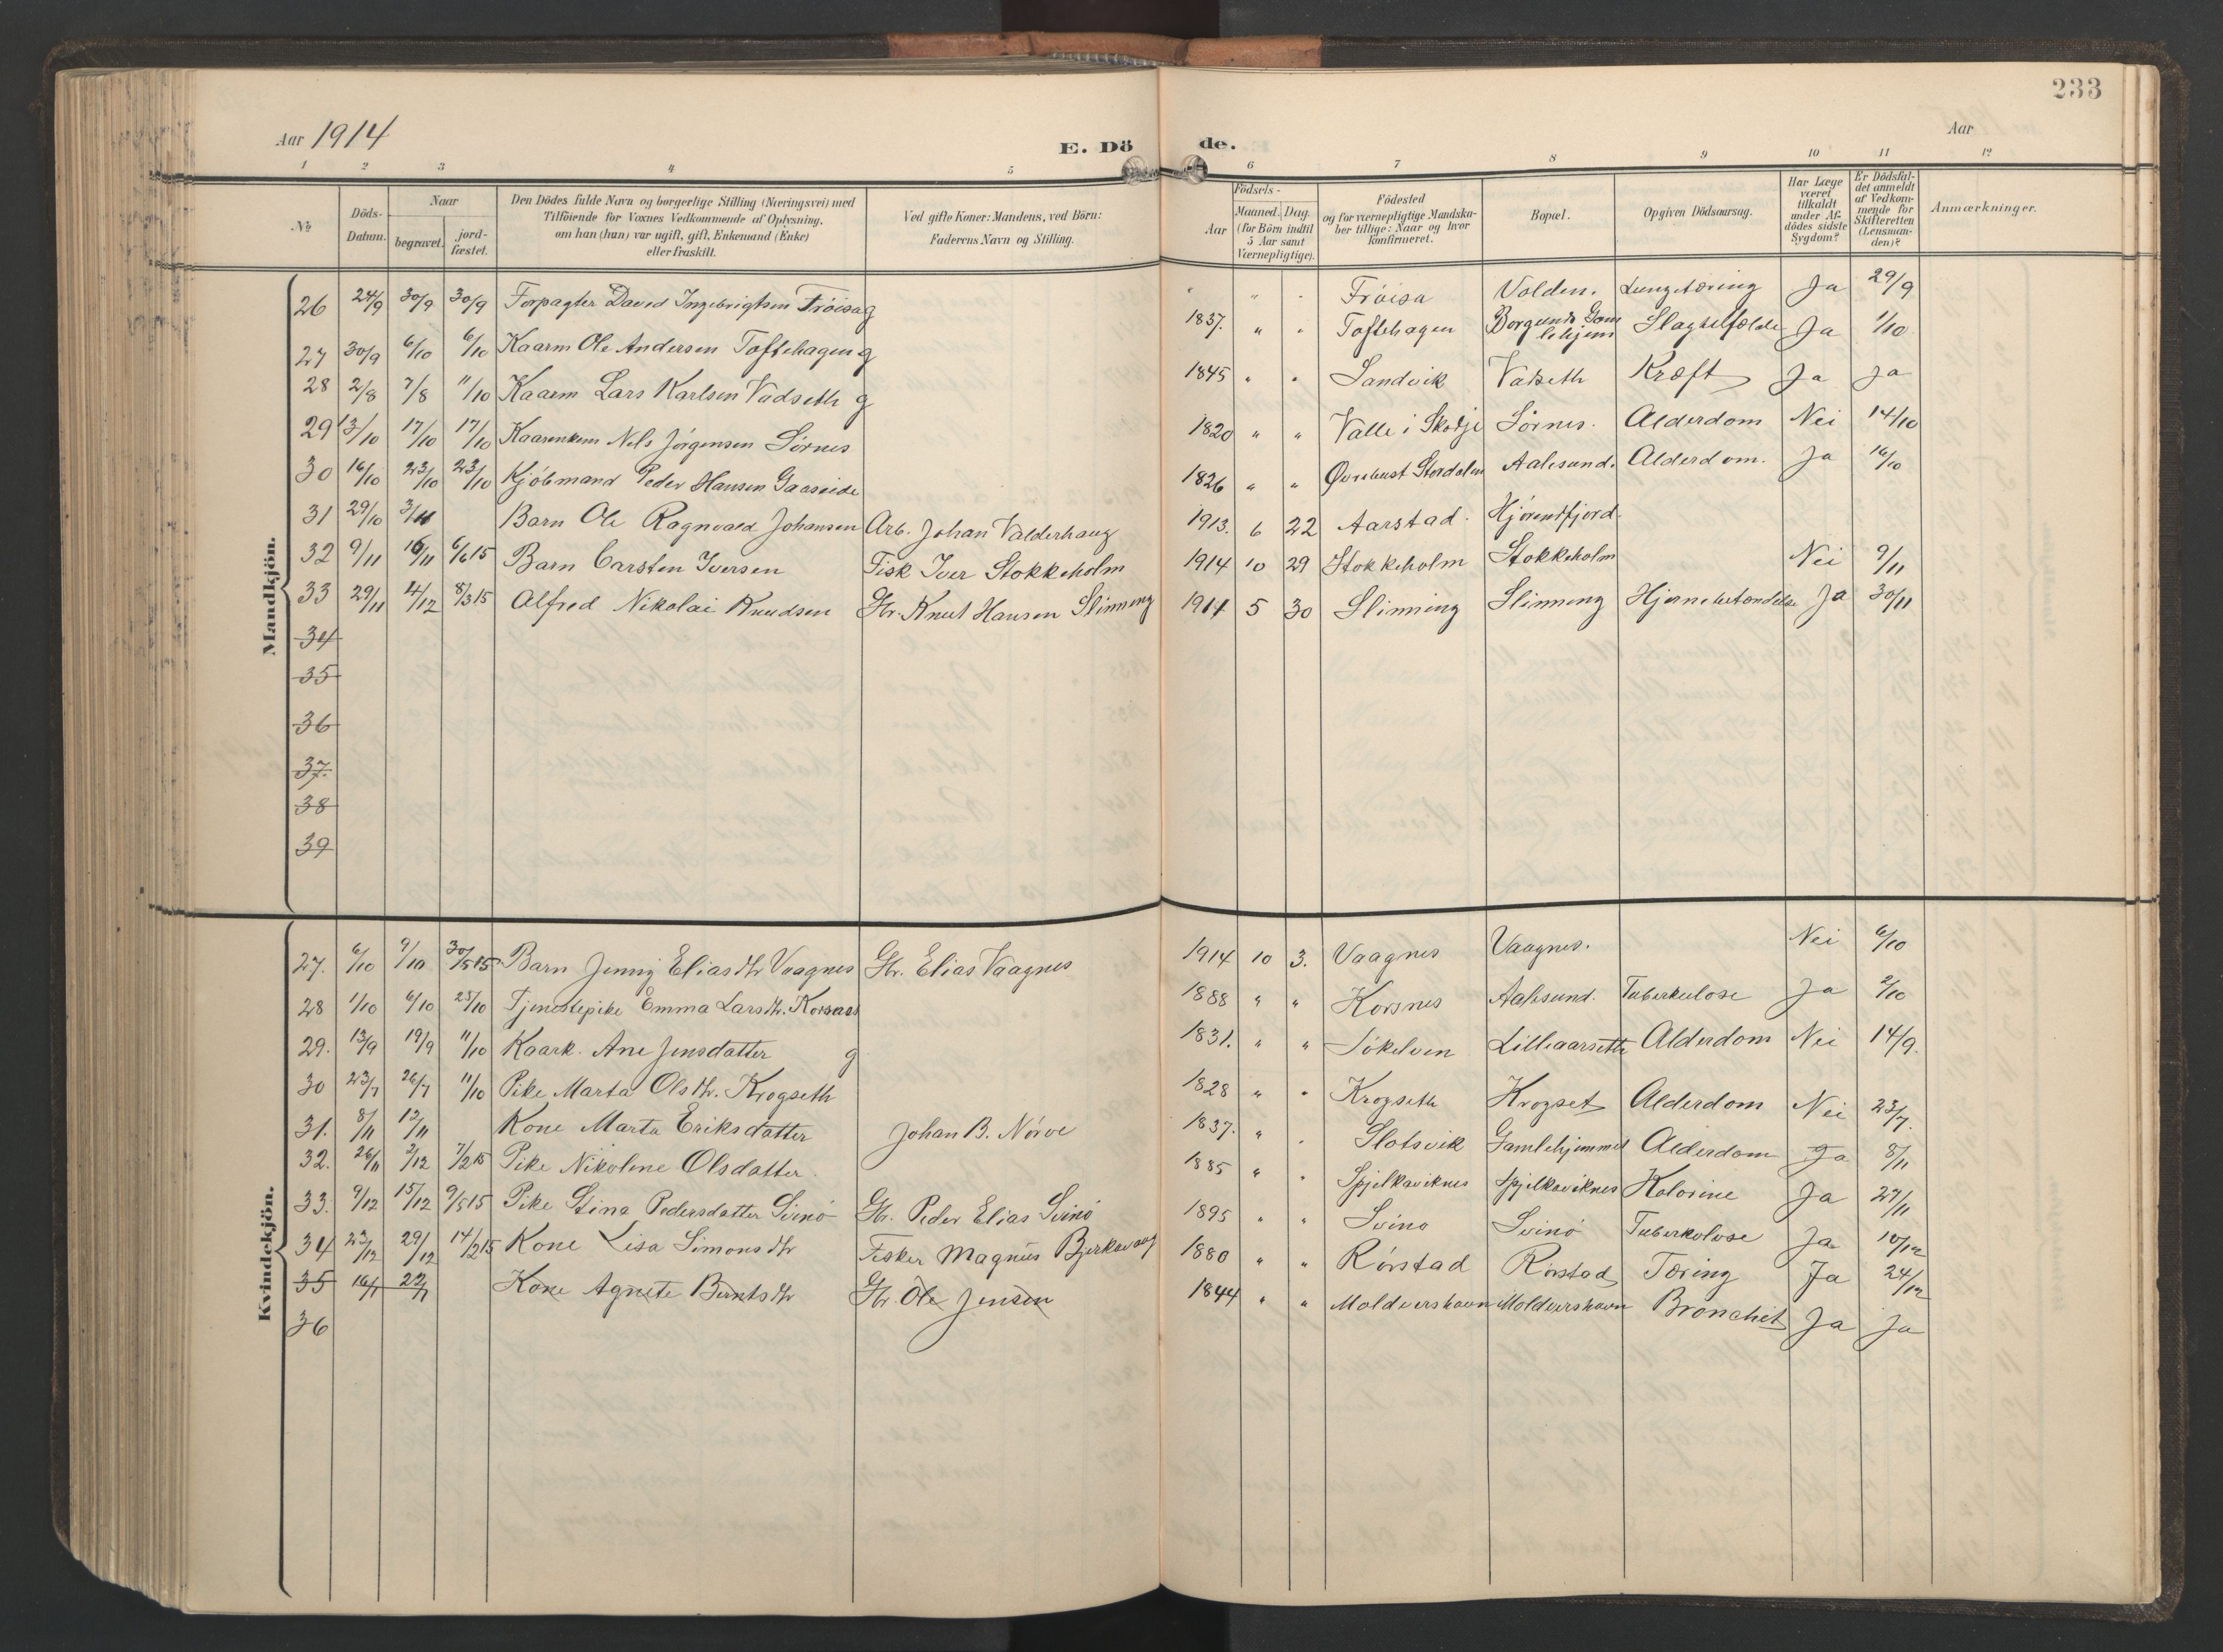 233
Aar 1914
E. Dö
de.
Aar
1 2 3 4 5 6 7 8 9 10 11 12
№
Döds-Datum.
Naar
begravet.
jord-fæstet.
Den Dödes fulde Navn og borgerlige Stilling (Næringsvei) med
Tilföiende for Voxnes Vedkommende af Oplysning,
om han (hun) var ugift, gift, Enkemand (Enke)
eller fraskilt.
Ved gifte Koner: Mandens, ved Börn:
Faderens Navn og Stilling.
Födsels-
Aar
Maaned. Dag.
(for Börn indtil
5 Aar samt
Værnepligtige).
Födested
og for værnepligtige Mandska-
ber tillige: Naar og hvor
konfirmeret.
Bopæl.
Opgiven Dödsaarsag.
Har Læge
været
tilkaldt
under Af-
dödes sidste
Sygdom?
Er Dödsfal-
det anmeldt
af Vedkom-
mende for
Skifteretten
(Lensman-
den)?
Anmærkninger.
Mandkjön.
26 24/9 30/9 30/9 Forpagter David Ingebrigtsen Fröisa g " " " Fröisa Volden. Lungetæring Ja 29/9
27 30/9 6/10 6/10 Kaarm Ole Andersen Toftehagen g 1837. " " Toftehagen Borgunds Gamlehjem Slagtilfælde Ja 1/10
28 2/8 7/8 11/10 Kaarm Lars Karlsen Vadseth g 1845 " " Sandvik Vatseth Kræft Ja Ja
29 13/10 17/10 17/10 Kaarenkem Nils Jörgensen Sörnes 1820 " " Valle i Skodje Sörnes. Alderdom Nei 14/10
30 16/10 23/10 23/10 Kjöbmand Peder Hansen Gaaseide 1826 " " Øvrebust Stordalen Aalesund. Alderdom. Ja 16/10
31 29/10 3/11 Barn Ole Ragnvald Johansen Arb. Johan Valderhaug 1913. 6 22 Aarstad. Hjörendfjord.
32 9/11 16/11 6/6 15 Barn Carsten Iversen Fisk Iver Stokkeholm 1914 10 29 Stokkeholm Stokkeholm Nei 9/11
33 29/11 4/12 8/3 15 Alfred Nikolai Knudsen Gbr. Knut Hansen Slinning 1914 5 30 Slinning Slinning Hjernebetændelse Ja 30/11
34
35
36
37.
38
39
Kvindekjön.
27. 6/10 9/10 30/5 15 Barn Jenny Eliasdtr Vaagnes Gbr. Elias Vaagnes 1914 10 3. Vaagnes Vaagnes. Nei 6/10
28 1/10 6/10 25/10 Tjenestepike Emma Larsdtr. Korsnes 1888 " " Korsnes Aalesund. Tuberkulose Ja 2/10
29. 13/9 19/9 11/10 Kaark. Ane Jensdatter g 1831. " " Sökelven Lilleaarseth Alderdom Nei 14/9.
30 23/7 26/7 11/10 Pike Marta Olsdtr. Krogseth 1828 " " Krogseth Krogset Alderdom Nei 23/7.
31. 8/11 13/11 Kone Marta Eriksdatter Johan B. Nörve 1837. " " Slotsvik Gamlehjemmet Alderdom Ja 8/11
32. 26/11 2/12 7/2 15 Pike Nikoline Olsdatter 1885 " " Spjelkaviknes Spjelkaviknes Ja 27/11
33. 9/12 15/12 9/5 15 Pike Stina Pedersdatter Svinö Gbr. Peder Elias Svinö 1895 " " Svinö Svinö Tuberkulose Ja 10/12
34 23/12 29/12 14/2 15 Kone Lisa Simonsdtr Fisker Magnus Bjerkavaag 1880 " " Rörstad Rörstad Tæring Ja 24/12
35 16/1 22/1 Kone Agnete Berntsdtr Gbr. Ole Jensen 1844 " " Moldvershavn Moldvershavn Bronchit Ja Ja
36